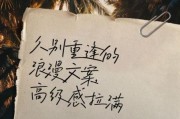 久别重逢的
浪漫文案
高级感拉满